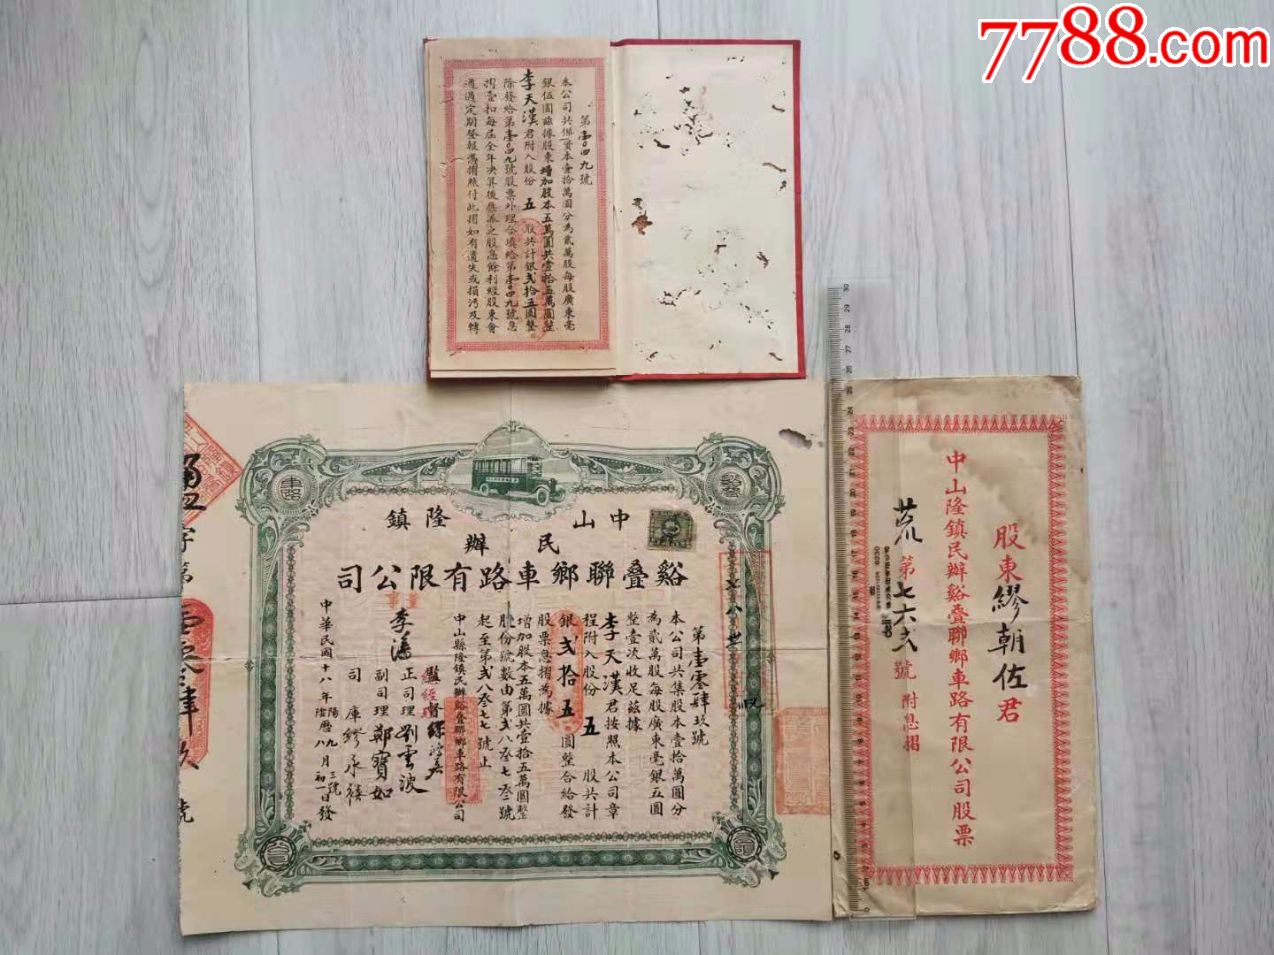 7788.com
第壹〇四九號
本公司共集資本壹拾萬圓分為貳萬股每股廣東毫
銀伍圓茲據股東增加股本五萬圓共壹拾五萬圓整
李天漢君附入股份五股共計銀弍拾五圓整
除發給第壹〇四九號股票外理合填給第壹〇四九號息
摺壹扣每屆全年決算後應派之股息餘利經股東會
通過定期登報憑摺照付此摺如有遺失或損污及轉
中山隆鎮
民辦
谿疊聯鄉車路有限公司
第壹零肆玖號
本公司共集股本壹拾萬圓分
為貳萬股每股廣東毫銀五圓
整壹次收足茲據
李天漢君按照本公司章
程附入股份五股共計
銀弍拾五圓整合給發
股票息摺為據
增加股本五萬圓共壹拾五萬圓整
股份號數由第弍八叁七叁號
起至第弍八叁七七號止
中山縣隆鎮民辦谿疊聯鄉車路有限公司
正司理劉雲波
副司理鄭寶如
司庫繆承禧
李漢
中華民國十八年陽曆九月三號陰曆八月初一日發
股東繆朝佐君
中山隆鎮民辦谿疊聯鄉車路有限公司股票
荒第七六弍號附息摺